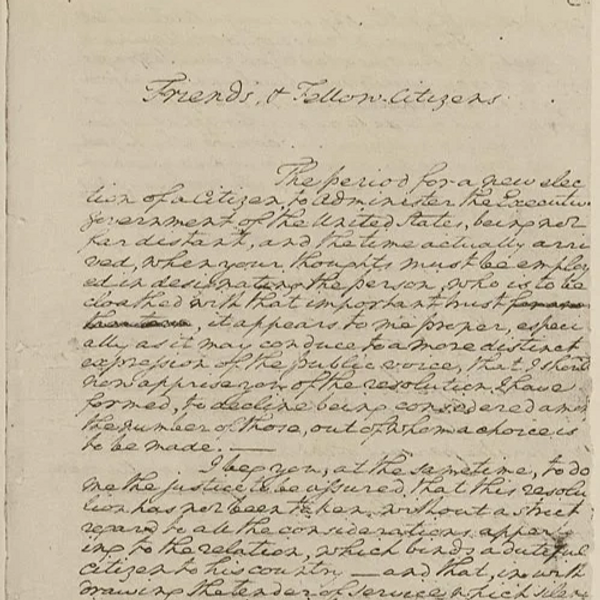 Friends, & Fellow-Citizens
The period for a new elec
tion of a Citizen to administer the Executive
government of the United States, being not
far distant, and the time actually arri
ved, when your thoughts must be employ
ed in designating the person, who is to be
cloathed with that important trust for an
other term, it appears to me proper, especi
ally as it may conduce to a more distinct
expression of the public voice, that I should
now apprise you of the resolution I have
formed, to decline being considered among
the number of those, out of whom a choice is
to be made. —
I beg you, at the sametime, to do
me the justice to be assured, that this resolu
tion has not been taken, without a strict
regard to all the considerations appertain
ing to the relation, which binds a dutiful
citizen to his country — and that, in with
drawing the tender of service which silence